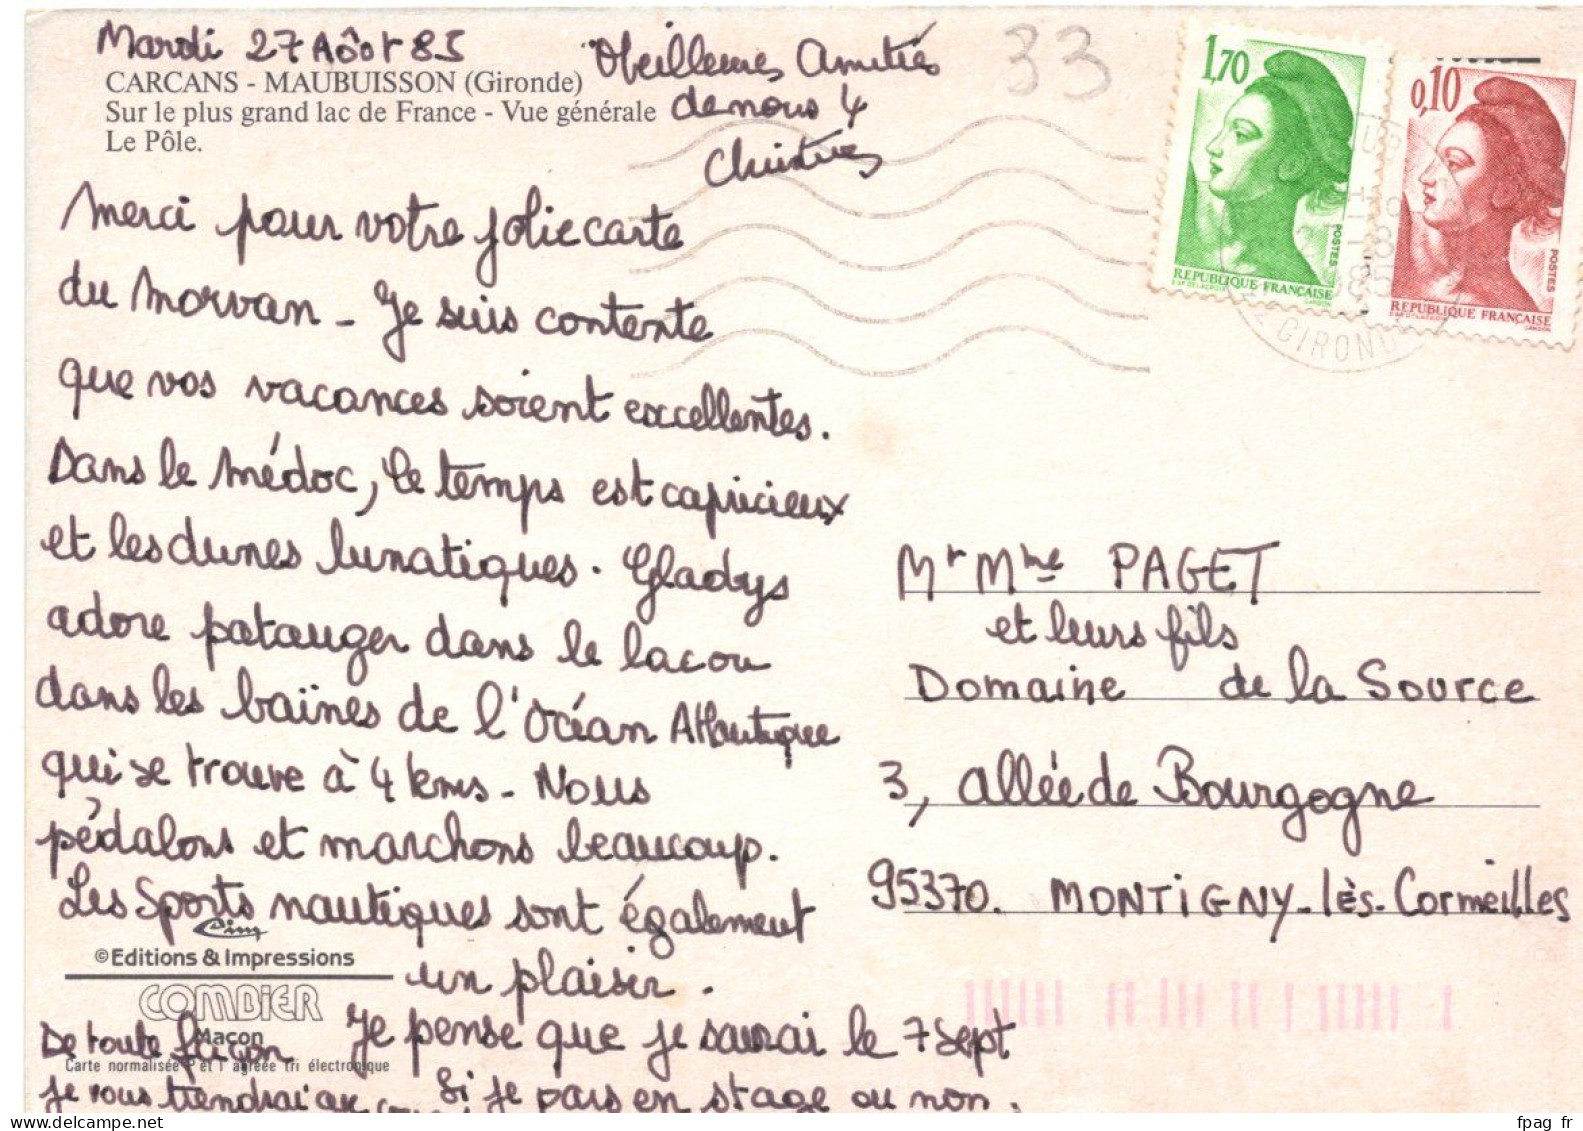 Mardi 27 Août 85
CARCANS - MAUBUISSON (Gironde)
Sur le plus grand lac de France - Vue générale
Le Pôle.
Meilleures Amitiés
de nous 4
33
1,70
POSTES
REPUBLIQUE FRANÇAISE
0,10
POSTES
REPUBLIQUE FRANÇAISE
GIRONDE
Merci pour votre jolie carte
du Morvan - Je suis contente
que vos vacances soient excellentes.
Dans le Médoc, le temps est capricieux
et les dunes lunatiques. Gladys
adore patauger dans le lac ou
dans les baïnes de l'Océan Atlantique
qui se trouve à 4 kms - Nous
pédalons et marchons beaucoup.
Les Sports nautiques sont également
un plaisir.
Je pense que je saurai le 7 Sept
si je pars en stage ou non.
De toute façon
je vous tiendrai au
Cim
©Editions & Impressions
COMBIER
Macon
Carte normalisée P et T agréée tri électronique
Mr Mme PAGET
et leurs fils
Domaine de la Source
3, allée de Bourgogne
95370. MONTIGNY-lès-Cormeilles
fpag_fr
www.delcampe.net